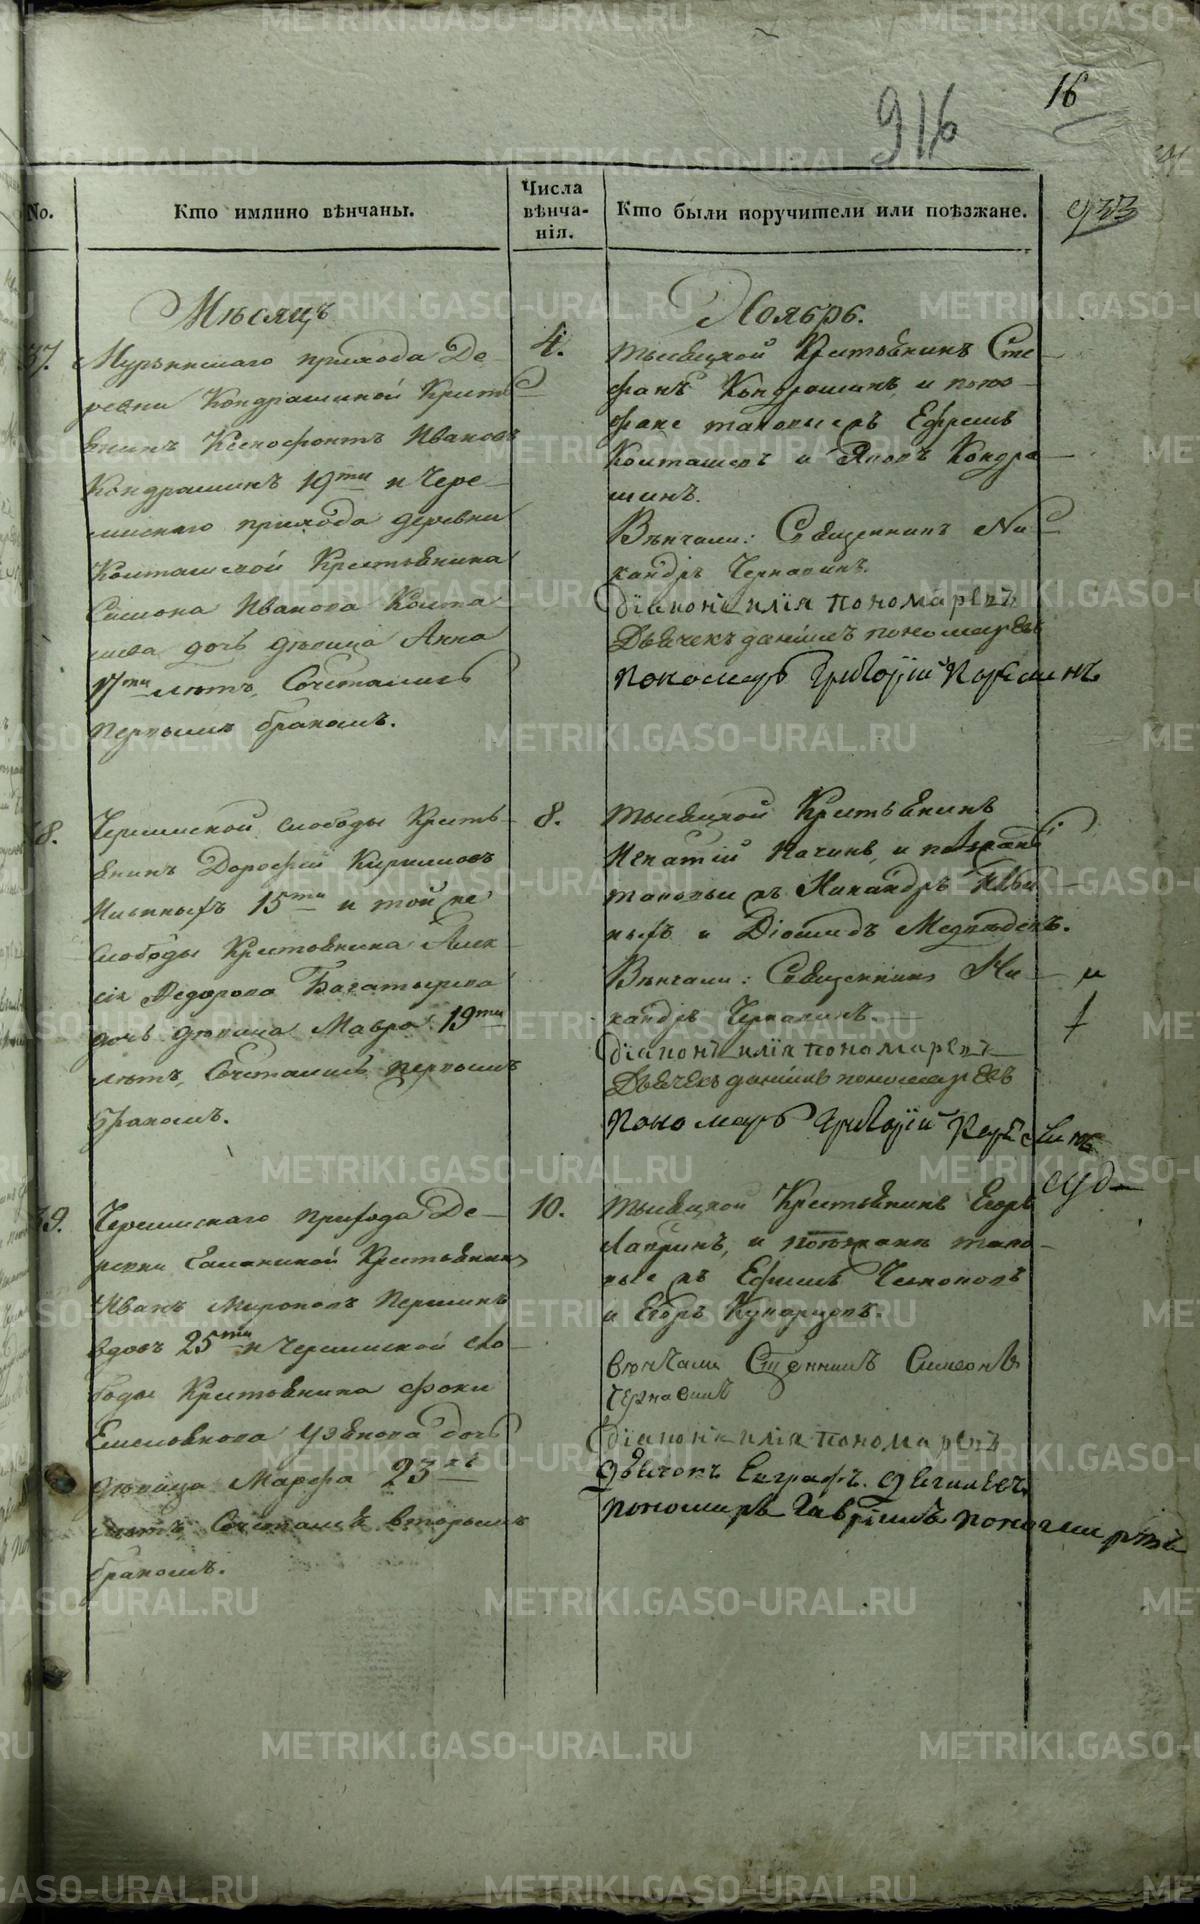 16
916
933
No.
Кто имянно вѣнчаны.
Числа
вѣнча-
нія.
Кто были поручители или поѣзжане.
Мѣсяцъ
Ноябрь.
37.
Мурзинскаго прихода Де-
ревни Кондрашиной Кресть
янинъ Ксенофонтъ Ивановъ
Кондрашинъ 19ти и Чере-
мискаго прихода деревни
Колташской Крестьянина
Симона Иванова Колта
шева дочь дѣвица Анна
17ти лѣтъ, Сочетались
первымъ бракомъ.
4.
Крестьянинъ Сте-
фанъ Кондрашинъ, и поѣз-
жане таковые жъ Ефремъ
Колташевъ и Яковъ Кондра-
шинъ.
Вѣнчали: Священникъ Ни-
кандръ Чернавинъ.
Діаконъ Илія Пономаревъ
Дьячекъ Даніилъ Пономаревъ
Пономарь Григорій
8.
Черемиской слободы Кресть-
янинъ Дорофей Кириловъ
15ти и той же
слободы Крестьянина Алек-
сія Федорова Багатырева
дочь дѣвица Мавра 19ти
лѣтъ, Сочетались первымъ
бракомъ.
8.
Крестьянинъ
Игнатій Качинъ, и поѣзжане
таковые жъ Никандръ
и Діомидъ Медвѣдевъ.
Вѣнчали: Священникъ Ни-
кандръ Чернавинъ.
Діаконъ Илія Пономаревъ
Дьячекъ Даніилъ Пономаревъ
Пономарь Григорій
39.
Черемискаго прихода Де-
ревни Крестьянинъ
Иванъ Мироновъ Першинъ
вдовъ 25ти и Черемиской сло-
боды Крестьянина Фоки
дочь
дѣвица Марфа 23хъ
лѣтъ Сочетались вторымъ
бракомъ.
10.
Крестьянинъ Егоръ
Лавринъ, и поѣзжане тако-
вые жъ Ефимъ
и Егоръ
вѣнчали Сщенникъ Симеонъ
Чернавинъ
Діаконъ Илія Пономаревъ
Дьячокъ Евграфъ
Пономарь Гавріилъ Пономаревъ
METRIKI.GASO-URAL.RU